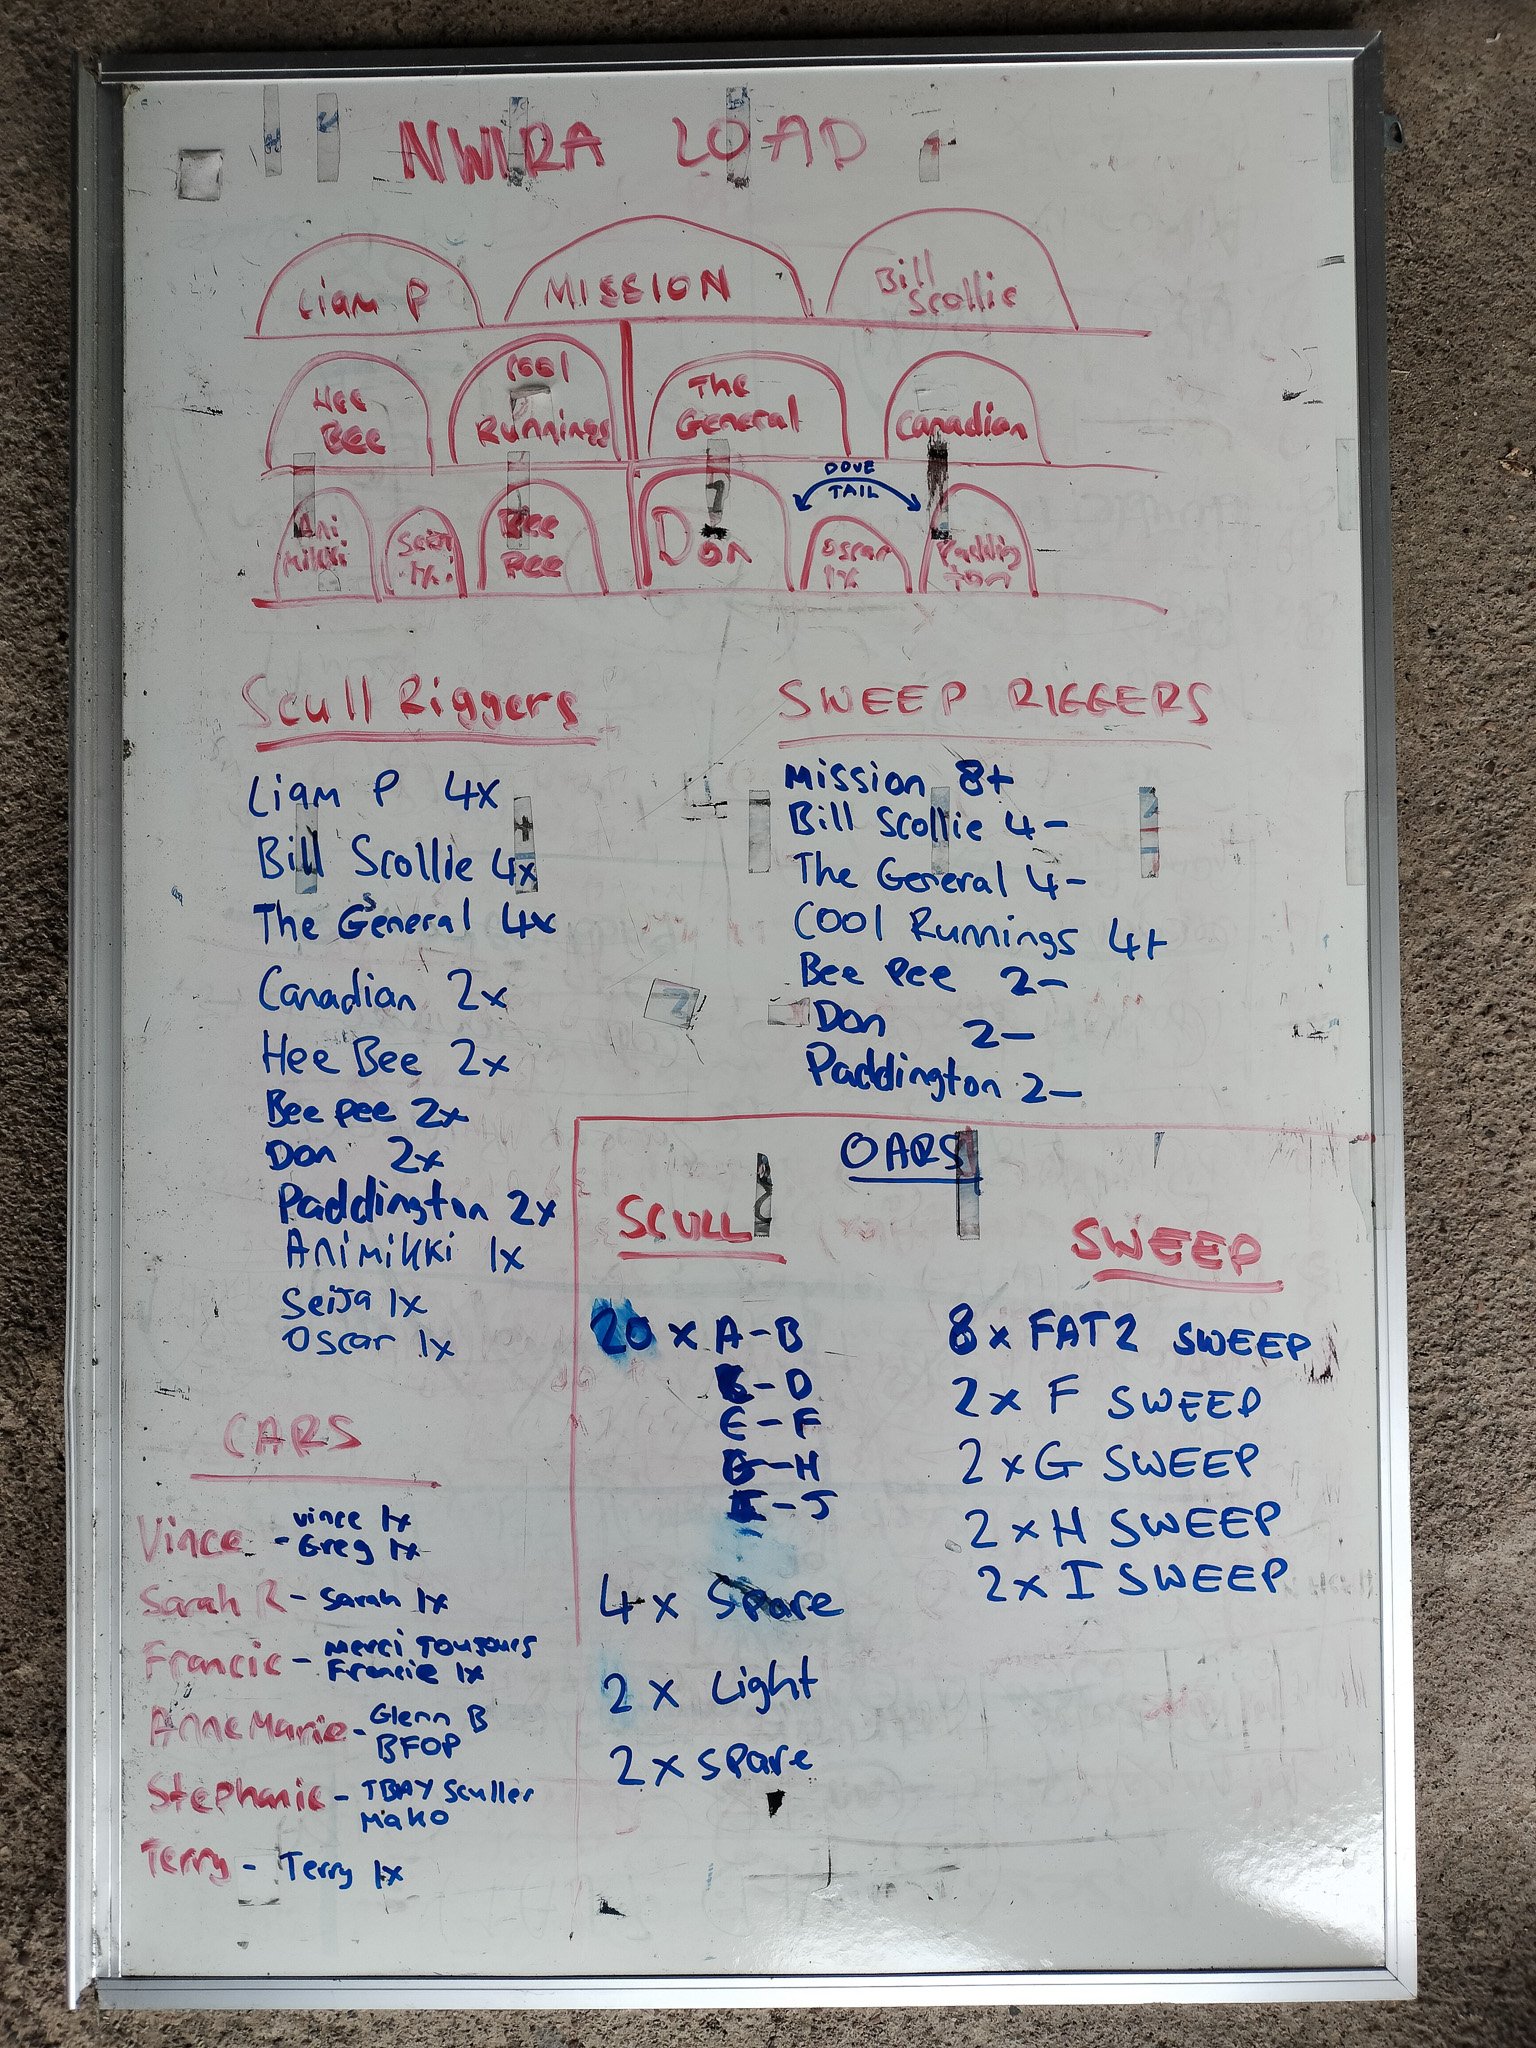 NWIRA LOAD
Liam P
MISSION
Bill
Scollie
Hee
Bee
Cool
Runnings
The
General
Canadian
Ani
Mikki
Seija
1x
Bee
Pee
Don
DOVE
TAIL
Oscar
1x
Padding
ton
Scull Riggers
Liam P 4x
Bill Scollie 4x
The General 4x
Canadian 2x
Hee Bee 2x
Bee Pee 2x
Don 2x
Paddington 2x
Animikki 1x
Seija 1x
Oscar 1x
SWEEP RIGGERS
Mission 8+
Bill Scollie 4-
The General 4-
Cool Runnings 4+
Bee Pee 2-
Don 2-
Paddington 2-
OARS
SCULL
20 x A-B
C-D
E-F
G-H
I-J
4x Spare
2x Light
2x Spare
SWEEP
8x FAT2 SWEEP
2x F SWEEP
2x G SWEEP
2x H SWEEP
2x I SWEEP
CARS
Vince - Vince 1x
Greg 1x
Sarah R - Sarah 1x
Francie - Merci Toujours
Francie 1x
Anne Marie - Glenn B
BFOP
Stephanie - TBAY Sculler
Mako
Terry - Terry 1x